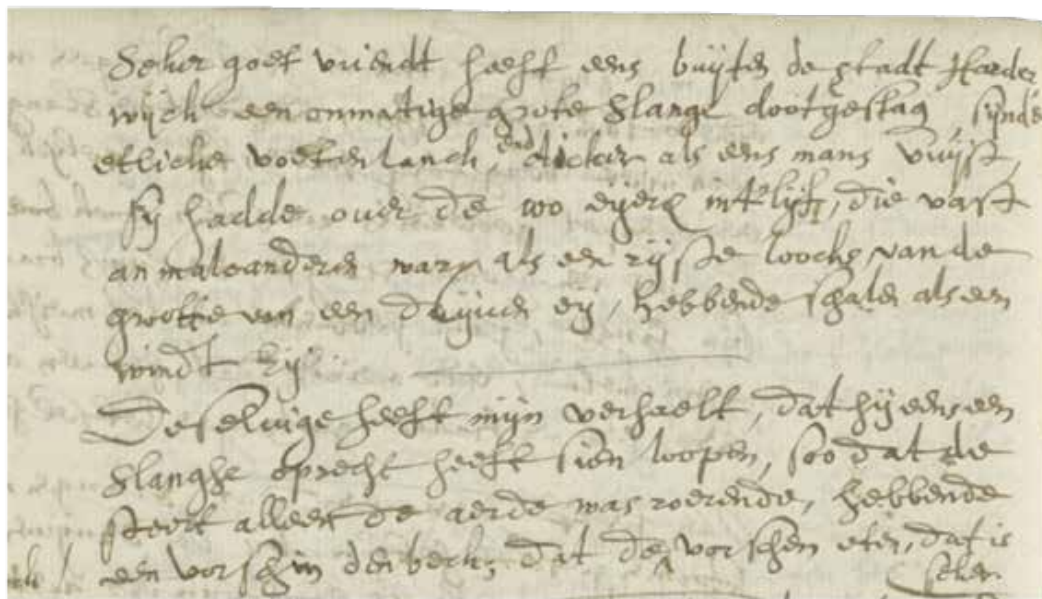 Seker goet vriendt heeft eens buijten de stadt Harder
wijck een onmatige grote slange dootgeslag, sijnde
etlicke voeten lanck, end dicker als eens mans vuijst,
sij hadde over de 100 eijeren int lijf, die vast
an malcanderen waren als een rijste loocks van de
grootte van een duijven eij, hebbende schalen als een
windt Eij.
Deselvige heeft mijn verhaelt, dat hij eens een
slanghe oprecht heeft sien loopen, soo dat de
steert alleen de aerde was roerende, hebbende
een vorsch in den beck, dat de vorschen eten, dat is
seker